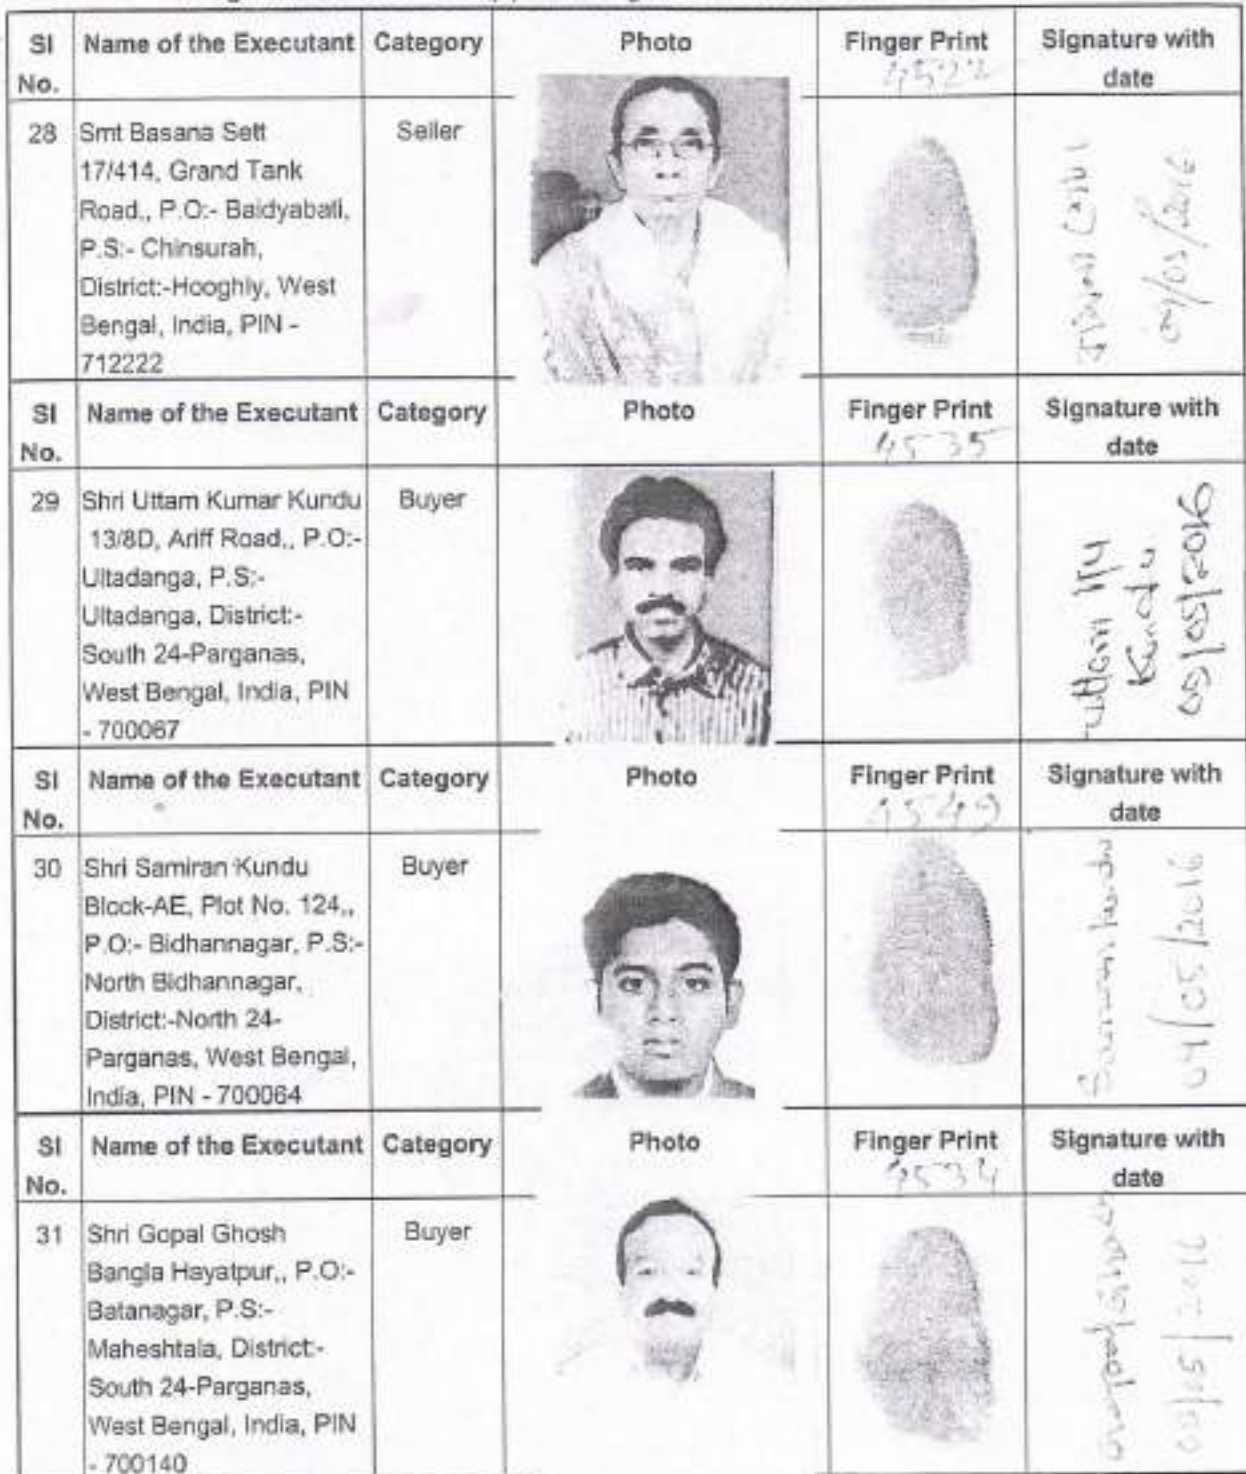 Sl No. Name of the Executant Category Photo Finger Print Signature with date
4522
28 Smt Basana Sett Seller
17/414, Grand Tank
Road., P.O:- Baidyabati,
P.S:- Chinsurah,
District:-Hooghly, West
Bengal, India, PIN -
712222
04/05/2016
Sl No. Name of the Executant Category Photo Finger Print Signature with date
4535
29 Shri Uttam Kumar Kundu Buyer
13/8D, Ariff Road,, P.O:-
Ultadanga, P.S:-
Ultadanga, District:-
South 24-Parganas,
West Bengal, India, PIN
- 700067
Uttam
Kundu
05/05/2016
Sl No. Name of the Executant Category Photo Finger Print Signature with date
4549
30 Shri Samiran Kundu Buyer
Block-AE, Plot No. 124,,
P.O:- Bidhannagar, P.S:-
North Bidhannagar,
District:-North 24-
Parganas, West Bengal,
India, PIN - 700064
Samiran Kundu
04/05/2016
Sl No. Name of the Executant Category Photo Finger Print Signature with date
4534
31 Shri Gopal Ghosh Buyer
Bangla Hayatpur,, P.O:-
Batanagar, P.S:-
Maheshtala, District:-
South 24-Parganas,
West Bengal, India, PIN
- 700140